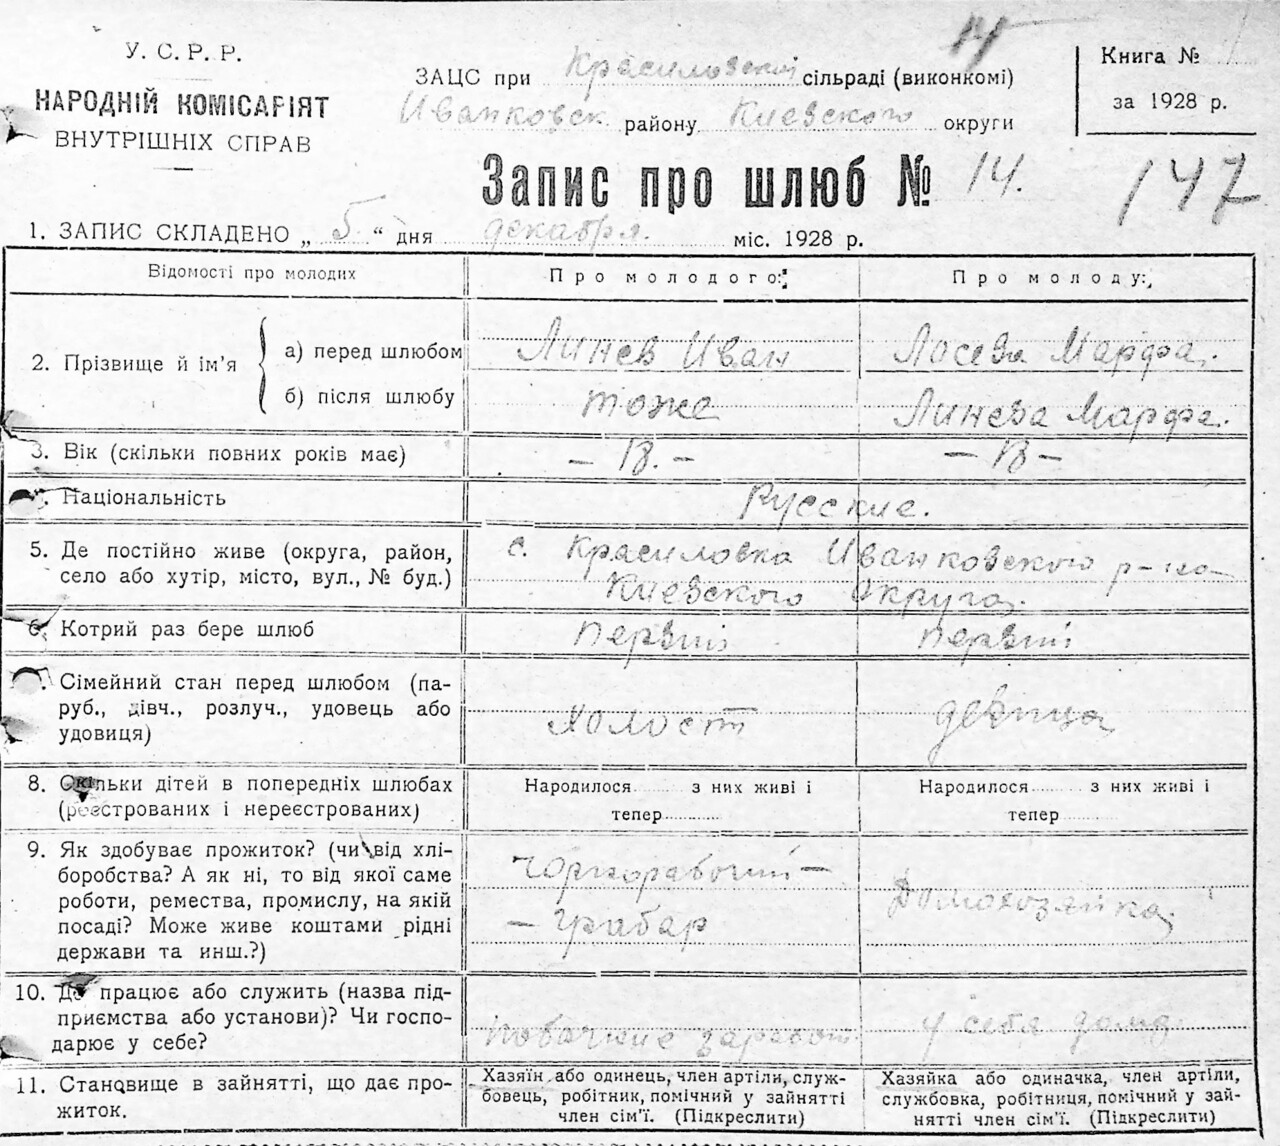 У. С. Р. Р.
НАРОДНІЙ КОМІСАРІЯТ
ВНУТРІШНІХ СПРАВ
14
ЗАЦС при Красиловской сільраді (виконкомі)
Иванковск району Киевского округи
Книга №
за 1928 р.
Запис про шлюб № 14.
147
1. ЗАПИС СКЛАДЕНО „ 5 “ дня декабря. міс. 1928 р.
Відомості про молодих
Про молодого:
Про молоду:
2. Прізвище й ім’я
а) перед шлюбом
Линев Иван
Лосева Марфа.
б) після шлюбу
тоже
Линева Марфа.
3. Вік (скільки повних років має)
– 18. –
– 18 –
Національність
Русские.
5. Де постійно живе (округа, район,
село або хутір, місто, вул., № буд.)
с. Красиловка Иванковского р-на
Киевского округа.
6. Котрий раз бере шлюб
Первий
Первий
Сімейний стан перед шлюбом (па-
руб., дівч., розлуч., удовець або
удовиця)
холост
девица
8. Скільки дітей в попередніх шлюбах
(реєстрованих і нереєстрованих)
Народилося з них живі і
тепер
Народилося з них живі і
тепер
9. Як здобуває прожиток? (чи від хлі-
боробства? А як ні, то від якої саме
роботи, ремества, промислу, на якій
посаді? Може живе коштами рідні
держави та инш.?)
Чорнорабочий –
– грабар
Домохозяйка
10. Де працює або служить (назва під-
приємства або установи)? Чи госпо-
дарює у себе?
заработ.
у себя дома
11. Становище в зайнятті, що дає про-
житок.
Хазяїн або одинець, член артіли, служ-
бовець, робітник, помічний у зайнятті
член сім’ї. (Підкреслити)
Хазяйка або одиначка, член артіли,
службовка, робітниця, помічний у зай-
нятті член сім’ї. (Підкреслити)